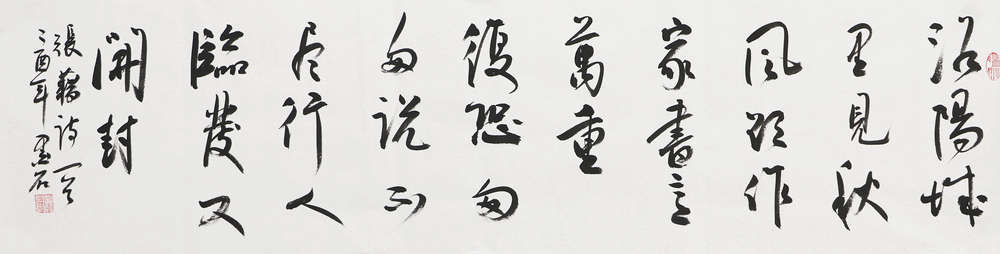 洛陽城
里見秋
風欲作
家書意
萬重
復恐匆
匆說不
尽行人
臨發又
開封
張籍詩一首
酉年 石